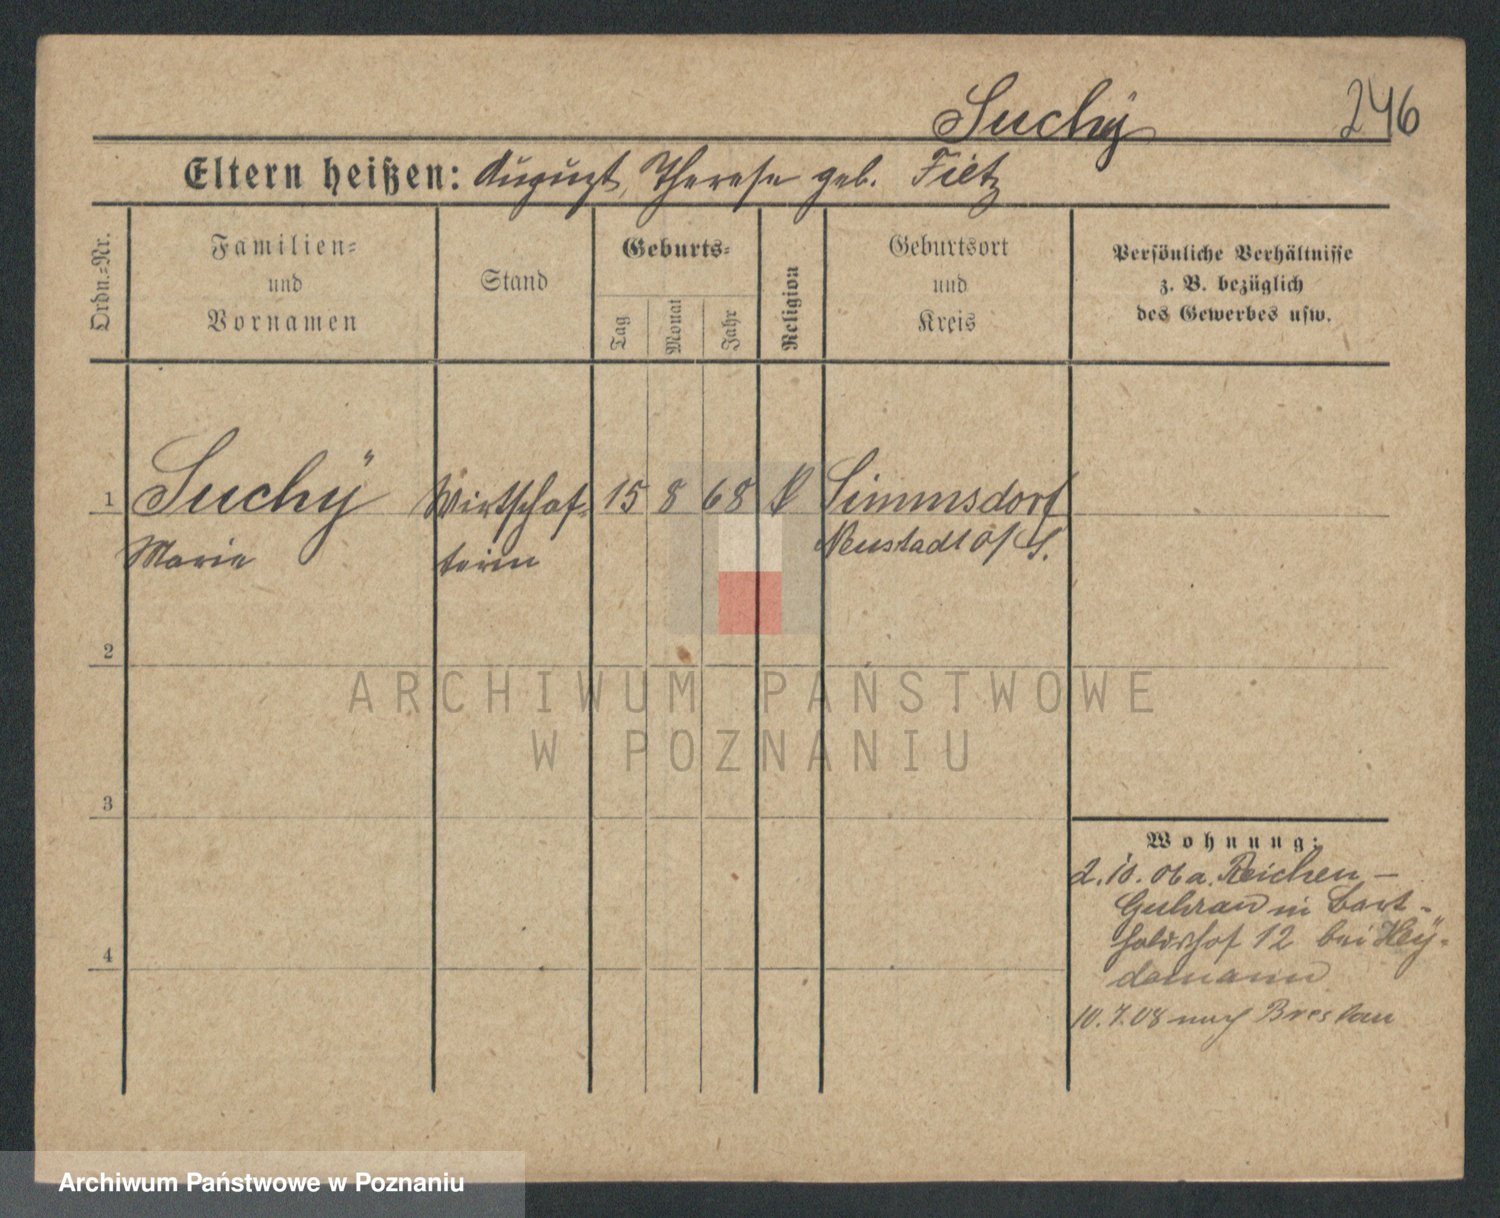 Suchÿ 246
Eltern heißen: August, Therese geb. Fietz
Ordn.=Nr.
Familien=
und
Vornamen
Stand
Geburts=
Tag
Monat
Jahr
Religion
Geburtsort
und
Kreis
Persönliche Verhältnisse
z. B. bezüglich
des Gewerbes usw.
1 Suchÿ Wirtschaf- 15 8 68 Simmsdorf
Marie terin Neustadt O/S.
2
ARCHIWUM PAŃSTWOWE
W POZNANIU
3
4
Wohnung:
2.10.06 a. Reichen-
Guhrau in Bart-
holdshof 12 bei Heÿ-
demann
10.7.08 nach Breslau
Archiwum Państwowe w Poznaniu